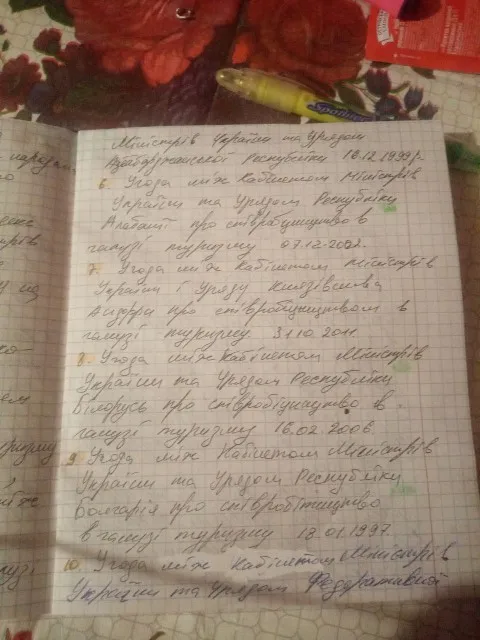 Міністрів України та Урядом
Азабарджанської Республіки 16.12.1999р.
6. Угода між Кабінетом Міністрів
України та Урядом Республіки
Албанії про співробітництво в
галузі туризму 07.12.2002.
7. Угода між Кабінетом Міністрів
України і Уряду Князівства
Андорра про співробітництвом в
галузі туризму 31.10.2011
8. Угода між Кабінетом Міністрів
України та Урядом Республіки
Білорусь про співробітництво в
галузі туризму 16.02.2006
9. Угода між Кабінетом Міністрів
України та Урядом Республіки
Болгарія про співробітництво
в галузі туризму 18.01.1997.
10. Угода між Кабінетом Міністрів
України та Урядом Федеративної